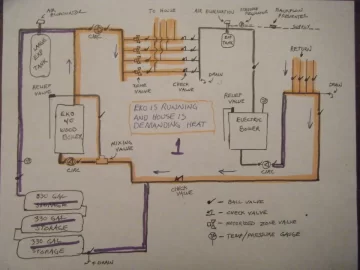 AIR ELIMINATOR
TO HOUSE
AIR ELIMINATOR
PRESSURE REDUCING
BACKFLOW PREVENTER
SUPPLY
LARGE EXP TANK
CIRC
EXP TANK
RETURN
ZONE VALVE
CHECK VALVE
DRAIN
DRAIN
RELIEF VALVE
RELIEF VALVE
EKO 40 WOOD BOILER
EKO IS RUNNING
AND HOUSE IS
DEMANDING HEAT
1
ELECTRIC BOILER
CIRC
MIXING VALVE
CIRC
CHECK VALVE
530 GAL
STORAGE
530 GAL
STORAGE
530 GAL
STORAGE
DRAIN
- BALL VALVE
- CHECK VALVE
- MOTORIZED ZONE VALVE
- TEMP/PRESSURE GAUGE